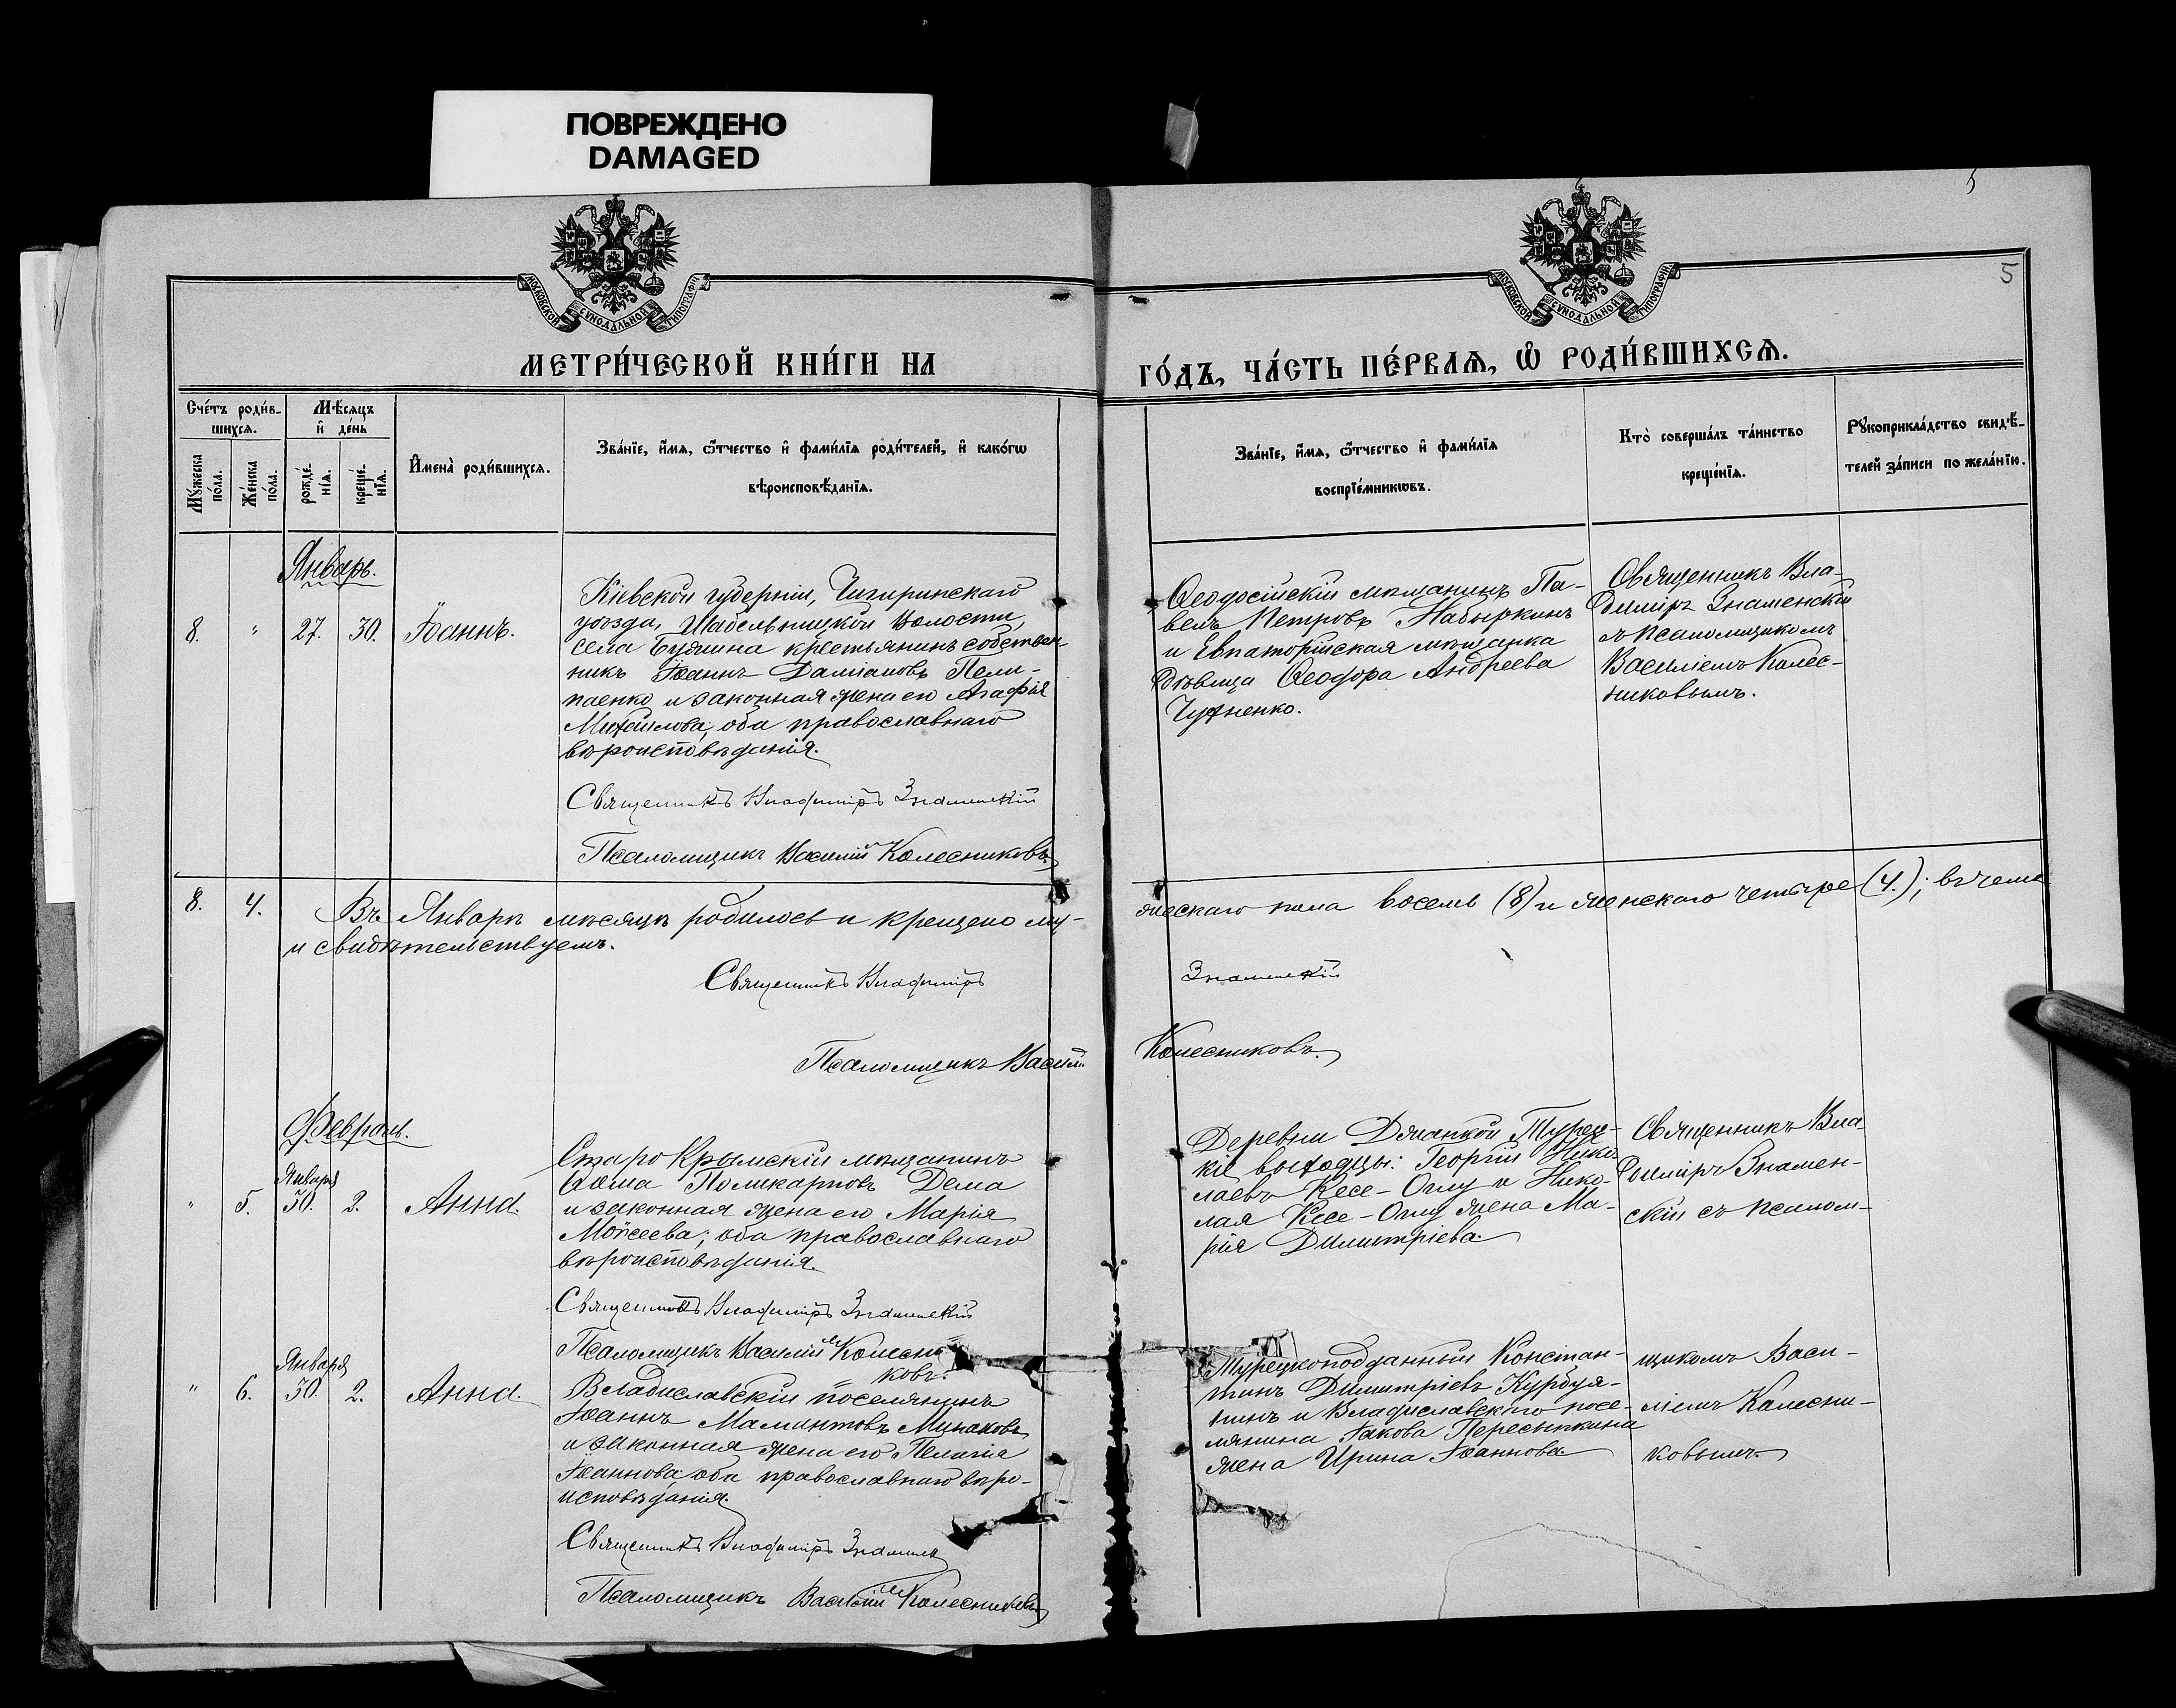 ПОВРЕЖДЕНО
DAMAGED
5
5
МОСКОВСКОЙ СѴНОДАЛЬНОЙ ТИПОГРАФІИ
МОСКОВСКОЙ СѴНОДАЛЬНОЙ ТИПОГРАФІИ
МЕТРИ́ЧЕСКОЙ КНИ́ГИ НА
ГО́ДЪ, ЧА́СТЬ ПЕ́РВАѦ, Ѡ҆ РОДИ́ВШИХСѦ.
Сче́тъ роди́в-
шихсѧ.
Мѣ́сѧцъ
и҆ де́нь
Мꙋ́жеска
по́ла.
Же́нска
по́ла.
рожде́-
нїѧ.
креще́-
нїѧ.
И҆мена̀ роди́вшихсѧ.
Зва́нїе, и҆́мѧ, ѻ҆́тчество и҆ фами́лїѧ роди́телей, и҆ како́гѡ
вѣроисповѣ́данїѧ.
Зва́нїе, и҆́мѧ, ѻ҆́тчество и҆ фами́лїѧ
воспрїе́мникѡвъ.
Кто̀ соверша́лъ та́инство
креще́нїѧ.
Рꙋкоприкла́дство свидѣ́-
телей за́писи по жела́нїю.
Январь.
8. " 27. 30. Іоаннъ.
Кіевской губерніи, Чигиринскаго
уѣзда, Шабельницкой волости,
села Бужина крестьянинъ собствен-
никъ Іоаннъ Даміановъ Пели-
паенко и законная жена его Агафія
Михайлова, оба православнаго
вѣроисповѣданія.
Священникъ Владиміръ Знаменскій
Псаломщикъ Василій Колесниковъ
Ѳеодосійскій мѣщанинъ Па-
велъ Петровъ Набыркинъ
и Евпаторійская мѣщанка
дѣвица Ѳеодора Андреева
Чужненко.
Священникъ Вла-
диміръ Знаменскій
съ псаломщикомъ
Василіемъ Колес-
никовымъ.
8. 4. Въ Январѣ мѣсяцѣ родилось и крещено му-
жескаго пола восемь (8) и женскаго четыре (4.); въ чемъ
и свидѣтельствуемъ.
Священникъ Владиміръ
Знаменскій
Псаломщикъ Василій
Колесниковъ.
Февраль.
Января
" 5. 30. 2. Анна.
Старо Крымскій мѣщанинъ
Ѳома Поликарповъ Дема
и законная жена его Марія
Моѵсеева; оба православнаго
вѣроисповѣданія.
Священникъ Владиміръ Знаменскій
Псаломщикъ Василій Колесни
ковъ.
Деревни Джанкой Турец-
кіе выходцы: Георгій Нико-
лаевъ Кесе-Оглу и Нико-
лая Кесе-Оглу жена Ма-
рія Димитріева.
Священникъ Вла
диміръ Знамен-
скій съ псалом-
Января
" 6. 30. 2. Анна.
Владиславскій поселянинъ
Іоаннъ Мамантовъ Минаковъ
и законная жена его Пелагія
Іоаннова, оба православнаго вѣро-
исповѣданія.
Священникъ Владиміръ Знаменск
Псаломщикъ Василій Колесниковъ
Турецкоподданный Констан-
тинъ Димитріевъ Курбуя-
нинъ и Владиславскаго посе-
лянина Іакова Пересыпкина
жена Ирина Іоаннова
щикомъ Васи-
ліемъ Колесни-
ковымъ.